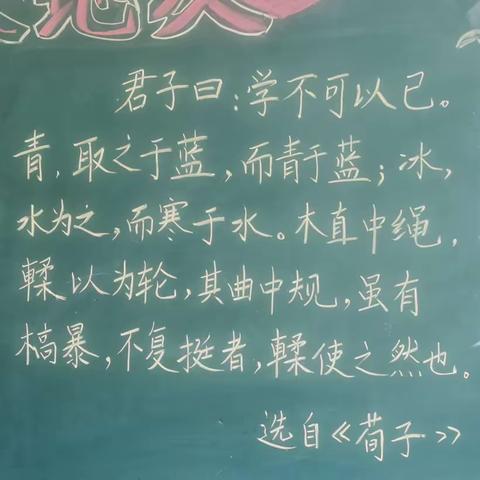 君子曰:学不可以已。
青,取之于蓝,而青于蓝;冰,
水为之,而寒于水。木直中绳,
輮以为轮,其曲中规,虽有
槁暴,不复挺者,輮使之然也。
选自《荀子》